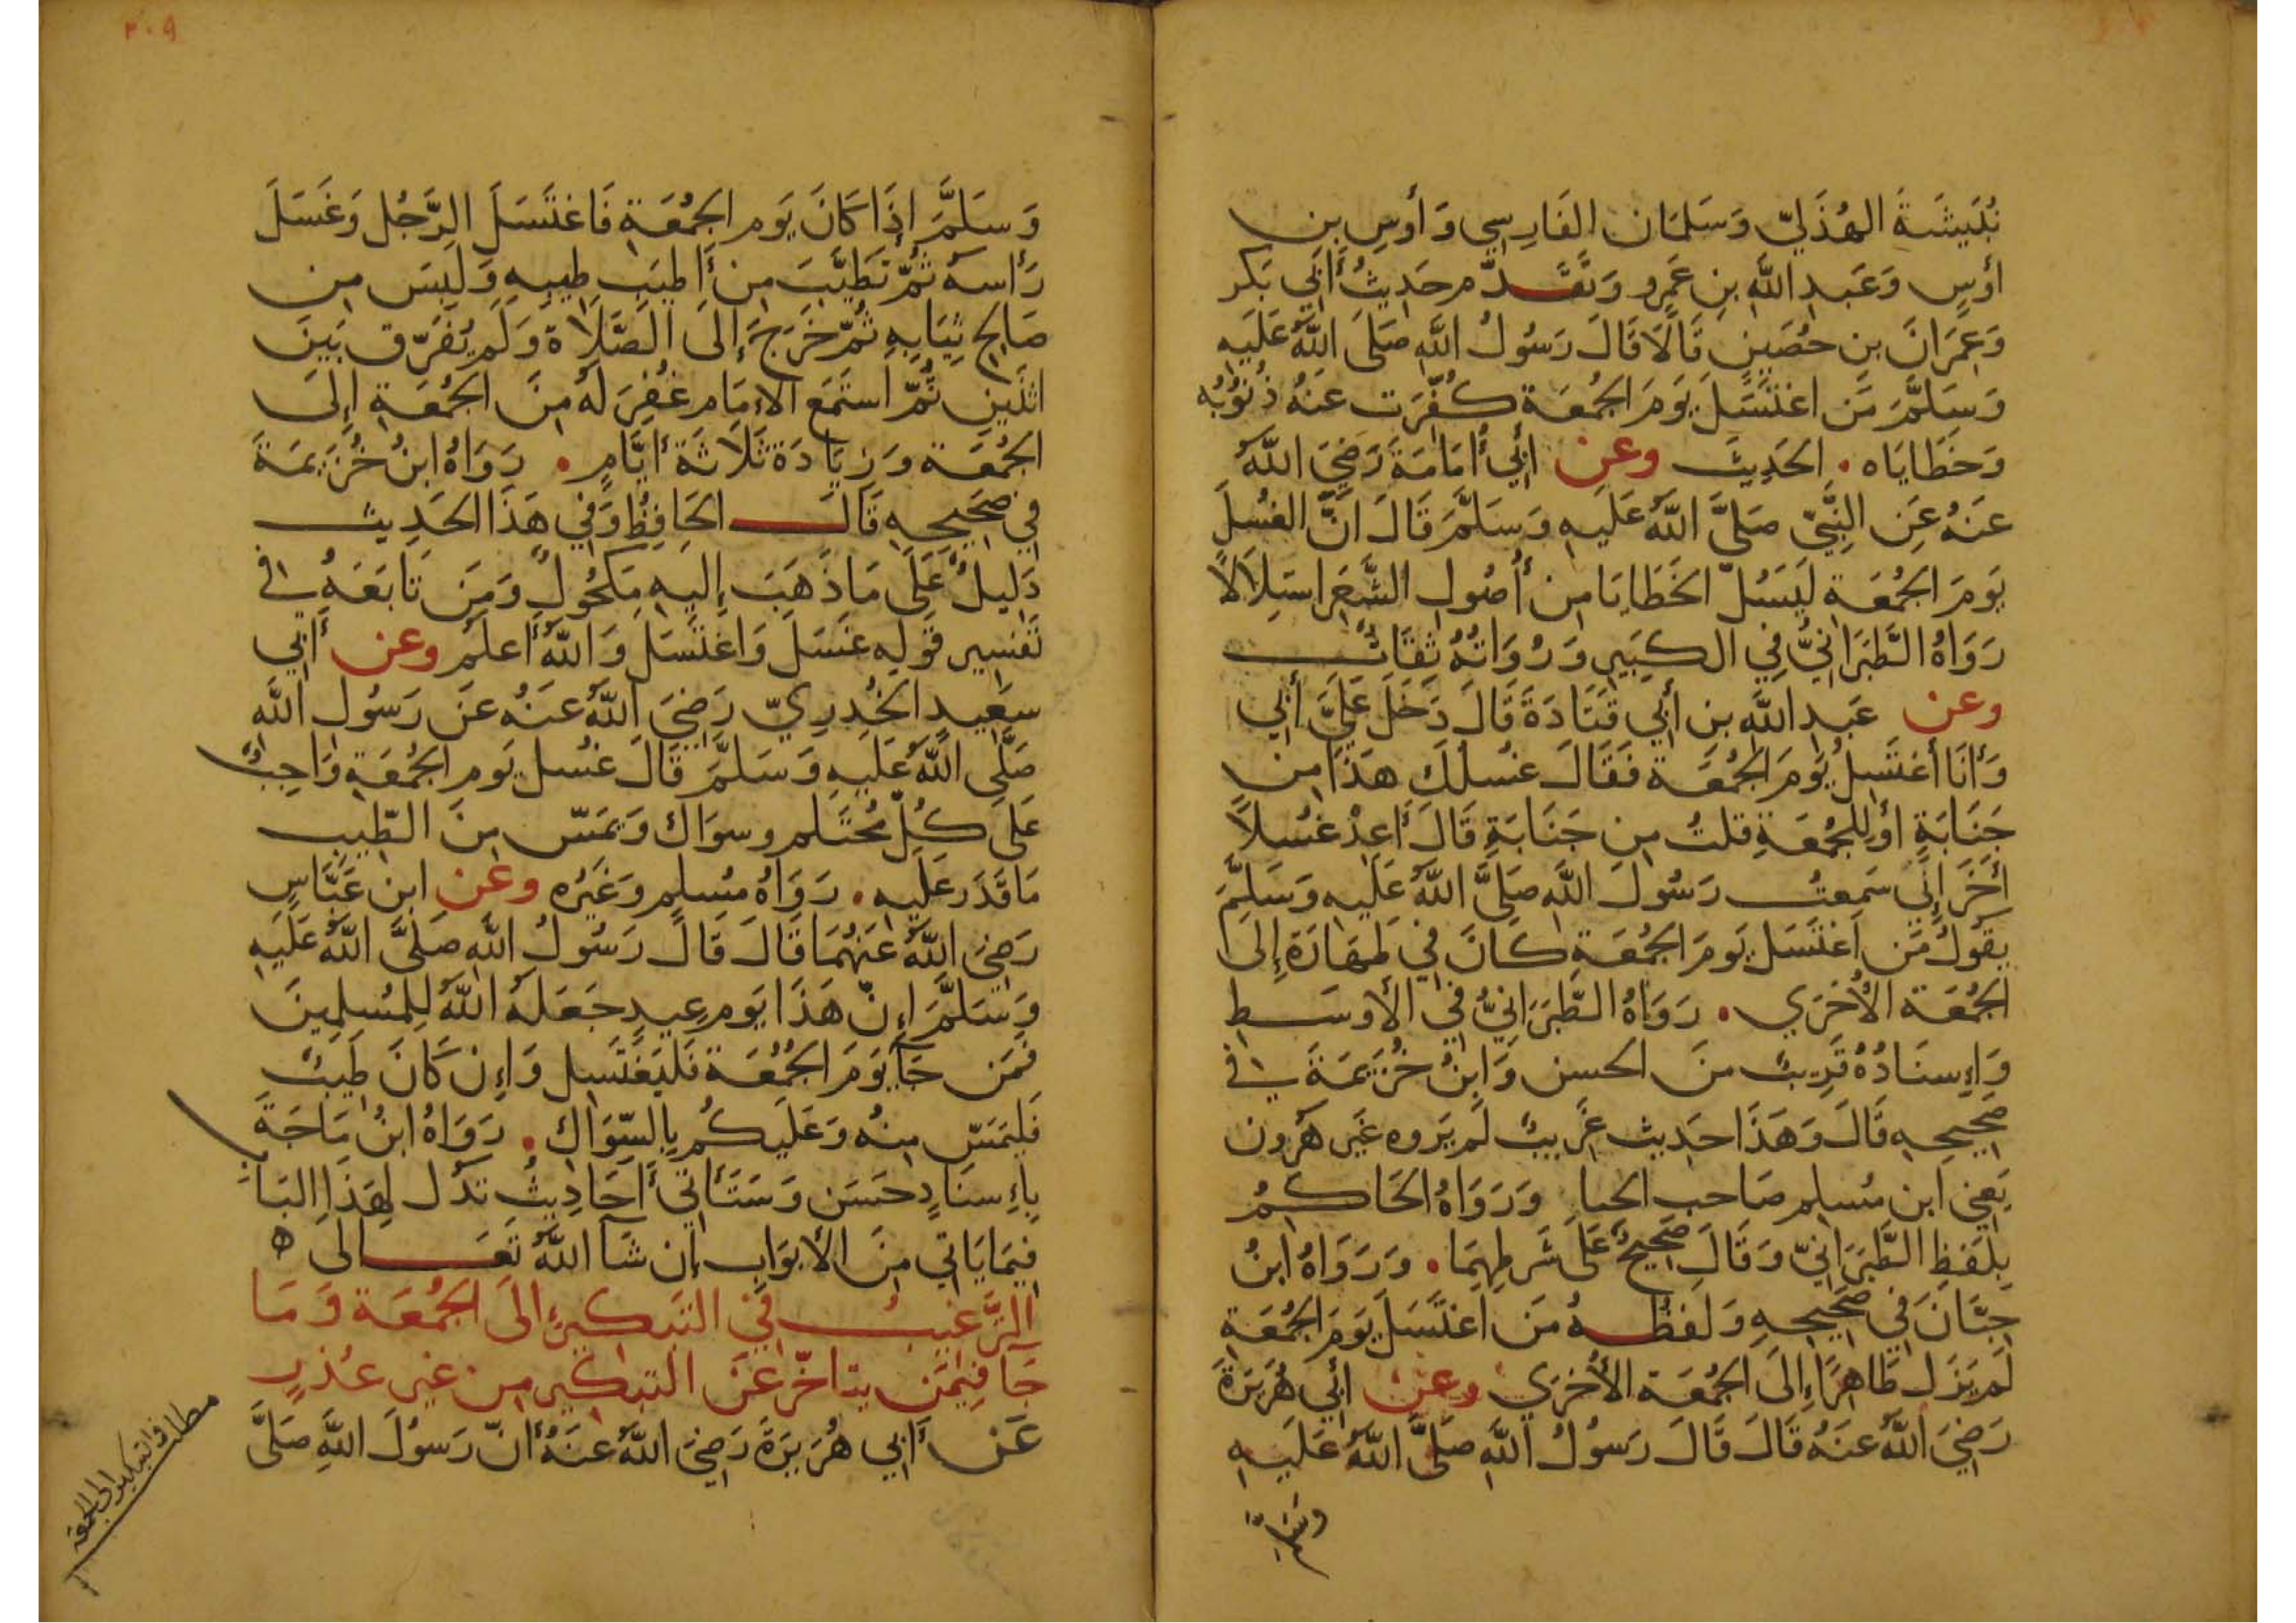 نُبَيشَةَ الهُذَليّ وَسَلمَان الفَارِسِي وَأوسِ بنِ
أوسٍ وَعَبدِ اللَّه بنِ عَمرٍو وَتَقَدّم حَدِيثُ أَبِي بَكر
وَعِمرَانَ بنِ حُصَينٍ قَالَا قَالَ رَسُولُ اللَّه صَلَى اللَّهُ عَلَيهِ
وَسَلَّمَ مَن اغتَسَلَ يَومَ الجُمُعَة كُفِّرَت عَنهُ ذُنُوبُه
وَخَطَايَاه . الحَدِيثَ وعن أَبِي أُمَامَةَ رَضِيَ اللَّهُ
عَنهُ عَنِ النَّبِيّ صَلَّى اللَّهُ عَلَيهِ وَسَلَّمَ قَالَ انَّ الغُسلَ
يَومَ الجُمُعَة لَيَسُلّ الخَطَايَا مِن أُصُولِ الشَّعَرِ استِلَالًا
رَوَاهُ الطَّبَرَانِيُّ فِي الكَبِيرِ وَرُوَاتُهُ ثِقَاتٌ
وعن عَبدِ اللَّه بنِ أَبِي قَتَادَةَ قَالَ دَخَلَ عَلَيَّ أَبِي
وَأَنَا أَغتَسِلُ يَومَ الجُمُعَة فَقَالَ غُسلُكَ هَذَا مِن
جَنَابَةٍ أَو لِلجُمُعَةِ قلتُ مِن جَنَابَةٍ قَالَ أَعِدْ غُسلًا
أخَرَ إِنِّي سَمِعتُ رَسُولَ اللَّهِ صَلَّى اللَّهُ عَلَيهِ وَسَلَّمَ
يَقُولُ مَن اغتَسَلَ يَومَ الجُمُعَةِ كَانَ فِي طَهَارَةٍ إِلَى
الجُمُعَة الأُخرَي . رَوَاهُ الطَّبَرَانِيُّ فِي الأَوسَطِ
وَإِسنَادُهُ قَرِيبٌ مِنَ الحسن وَابنُ خُزَيمَةَ فِي
صَحِيحِهِ قَالَ وَهَذَا حَدِيث غَرِيبٌ لَم يَروِه غَير هَرُون
يَعنِي ابن مُسلِمٍ صَاحِب الحِنا وَرَوَاهُ الحَاكِمُ
بِلَفظِ الطَّبَرَانِيّ وَقَالَ صَحِيحٌ عَلَى شَرطِهِمَا . وَرَوَاهُ ابنُ
حِبَّانَ فِي صَحِيحِهِ وَلَفظُهُ مَن اغتَسَلَ يَومَ الجُمُعَةِ
لَم يَزَل طَاهِرًا إِلَى الجُمُعَة الأُخرَي وعن أَبِي هُرَيرَةَ
رَضِيَ اللَّهُ عَنهُ قَالَ قَالَ رَسُولُ اللَّهِ صَلَّى اللَّهُ عَلَيهِ
وَسَلَّمَ
٢٠٩
وَسَلَّمَ إِذَا كَانَ يَوم الجُمُعَةِ فَاغتَسَلَ الرَّجُل وَغَسَلَ
رَأسهُ ثُمّ تَطَيَّبَ مِن أَطيَبِ طِيبِهِ وَلَبِسَ مِن
صَالِحِ ثِيَابِهِ ثُمّ خَرَجَ إِلَى الصَّلَاة وَلَم يُفَرّق بَينَ
اثنَينِ ثُمّ استَمَعَ الإِمَام غُفِرَ لَهُ مِنَ الجُمُعَةِ إِلَى
الجُمُعَة وَزِيَادَة ثَلَاثَة أَيَّامٍ . رَوَاهُ ابنُ خُزَيمَةَ
فِي صَحِيحِهِ قَالَ الحَافِظُ وَفِي هَذَا الحَدِيثِ
دَلِيلٌ عَلَى مَا ذَهَبَ إِلَيهِ مَكحُولٌ وَمَن تَابَعَهُ فِي
تَفسِيرِ قَولِه غَسَلَ وَاغتَسَلَ وَاللَّهُ أَعلَم وعن أَبِي
سَعِيدٍ الخُدرِيّ رَضِيَ اللَّهُ عَنهُ عَن رَسُولِ اللَّهِ
صَلَّى اللَّهُ عَلَيهِ وَسَلَّمَ قَالَ غُسل يَوم الجُمُعَةِ وَاجِبٌ
عَلَى كُلِّ مُحتَلم وسِوَاك وَيَمَسّ مِنَ الطِّيبِ
مَا قَدَر عَلَيهِ . رَوَاهُ مُسلِم وَغَيره وعن ابنِ عَبَّاسٍ
رَضِيَ اللَّهُ عَنهُمَا قَالَ قَالَ رَسُولُ اللَّهِ صَلَّى اللَّهُ عَلَيهِ
وَسَلَّمَ إِنّ هَذَا يَوم عِيدٍ جَعَلَهُ اللَّهُ لِلمُسلِمِينَ
فَمَن جَآ يَومَ الجُمُعَة فَليَغتَسِل وَإِن كَانَ طِيبٌ
فَليَمَسّ مِنهُ وَعَلَيكُم بِالسِّوَاكِ . رَوَاهُ ابنُ مَاجَةَ
بِإِسنَادٍ حَسَن وَسَتَأتِي أَحَادِيثُ تدَل لِهَذَا البَاب
فِيمَا يَاتي مِنَ الأَبوَابِ إِن شَآ اللَّهُ تَعَالى ه
التَّرغِيبُ فِي التَّبكِيرِ إلَى الجُمُعَة وَمَا
جَآ فِيمَن يتاخّر عَن التبكِيرِ مِن غيرِ عُذرٍ
عَن أَبِي هُرَيرَةَ رَضِيَ اللَّهُ عَنهُ أَنّ رَسُولَ اللَّهِ صَلَّى
مطلب في التبكير الى الجمعة